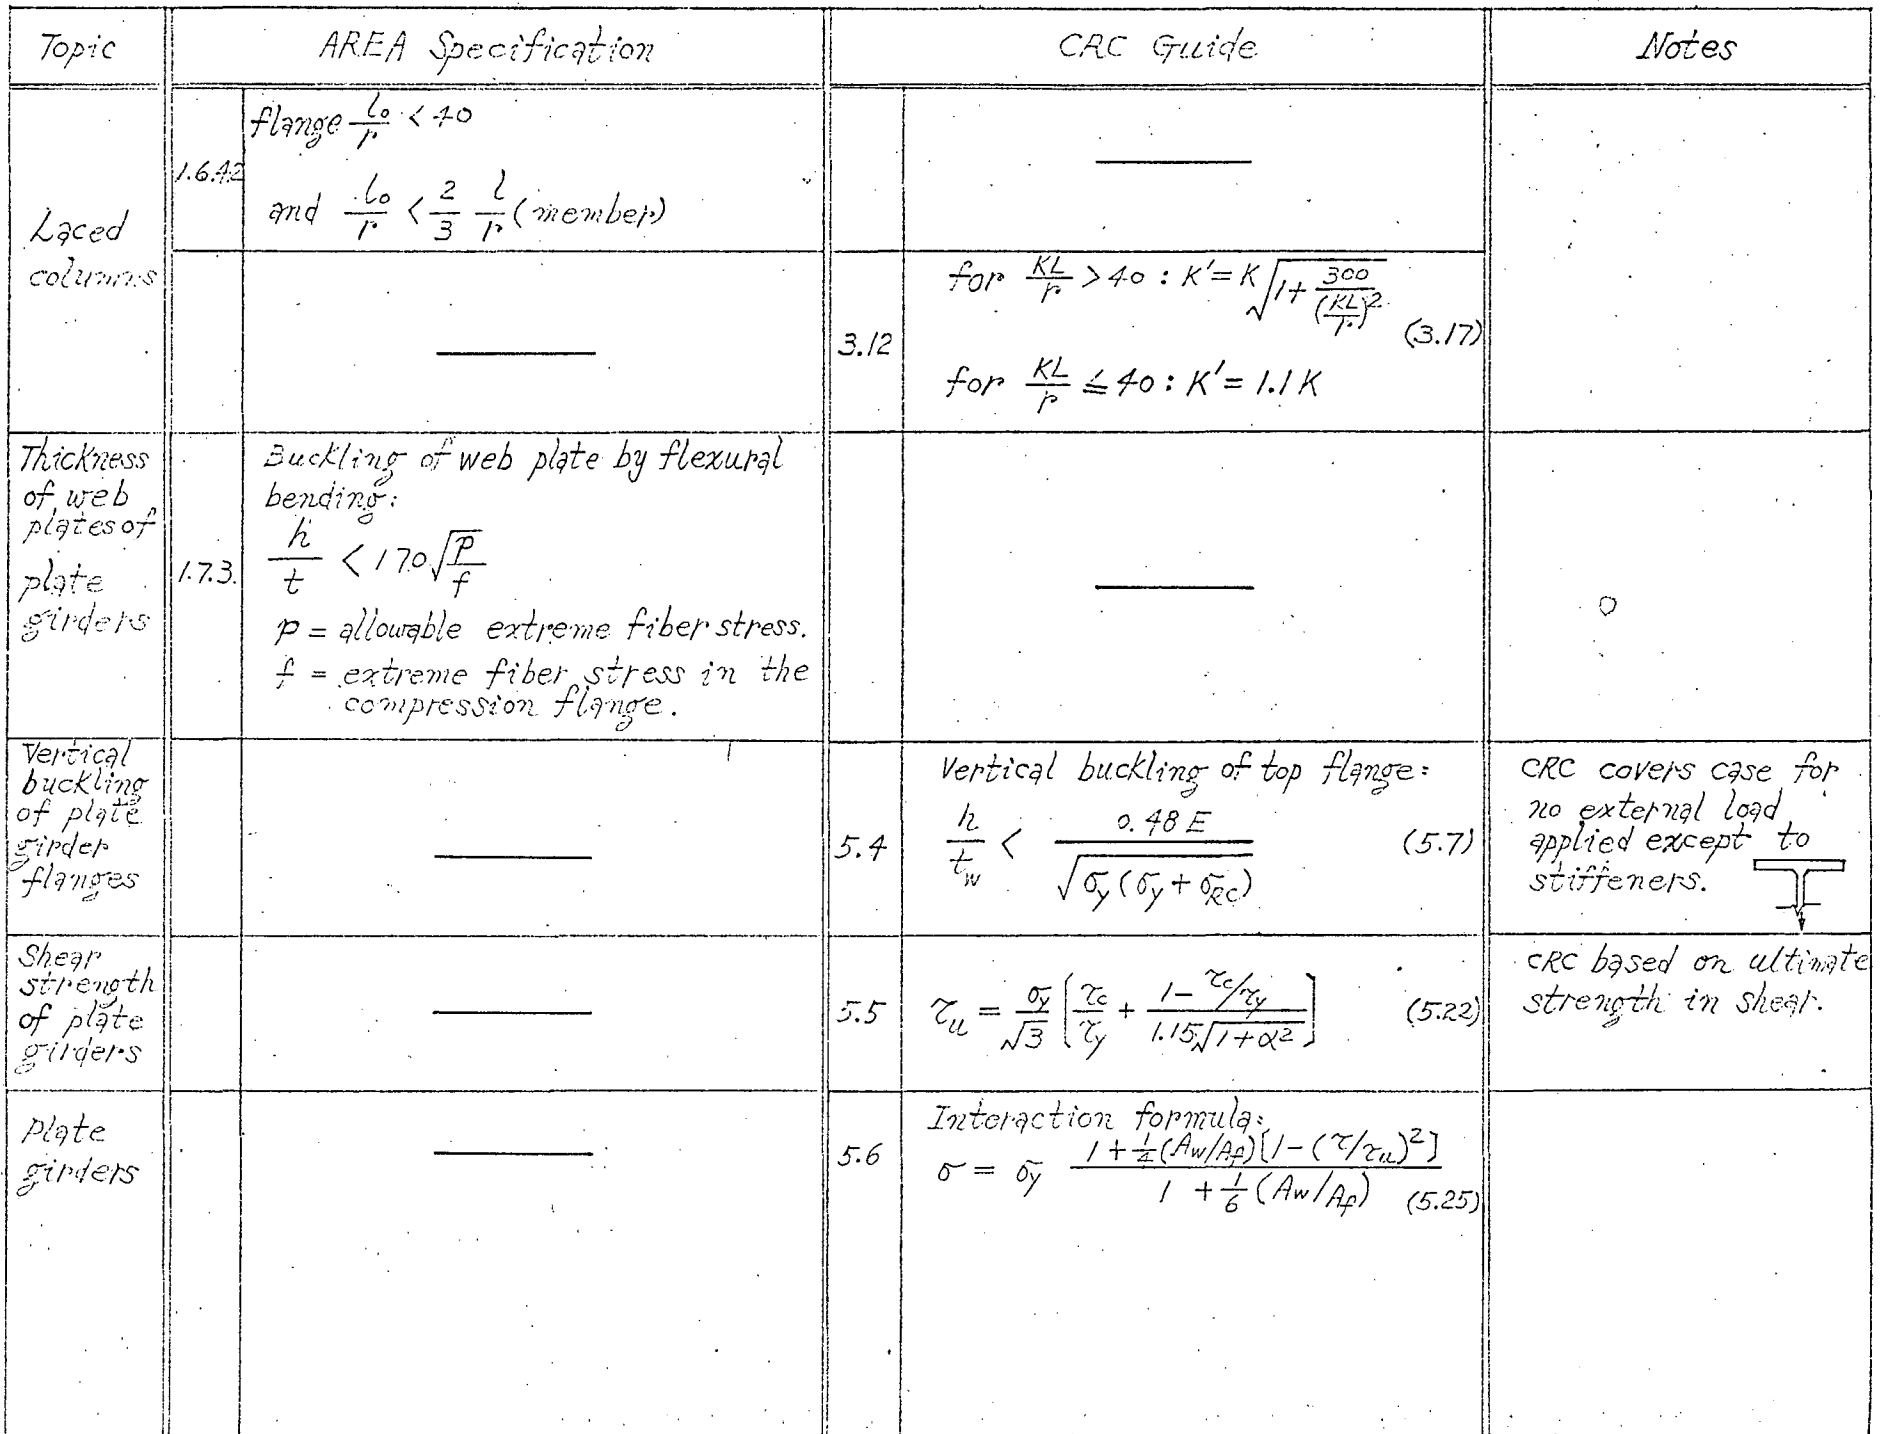 Topic
AREA Specification
CRC Guide
Notes
Laced
columns
1.6.42
flange l₀/r < 40
and l₀/r < 2/3 l/r (member)
3.12
for KL/r > 40 : K' = K √(1 + 300/(KL/r)²)
(3.17)
for KL/r ≦ 40 : K' = 1.1 K
Thickness
of web
plates of
plate
girders
1.7.3.
Buckling of web plate by flexural
bending:
h/t < 170 √(p/f)
p = allowable extreme fiber stress.
f = extreme fiber stress in the
compression flange.
Vertical
buckling
of plate
girder
flanges
5.4
Vertical buckling of top flange:
h/t_w < 0.48 E / √(σ_y (σ_y + σ_RC)) (5.7)
CRC covers case for
no external load
applied except to
stiffeners.
Shear
strength
of plate
girders
5.5
τ_u = σ_y/√3 [τ_c/τ_y + (1 - τ_c/τ_y)/(1.15 √(1+α²))] (5.22)
CRC based on ultimate
strength in shear.
Plate
girders
5.6
Interaction formula:
σ = σ_y (1 + 1/4 (Aw/Af) [1 - (τ/τ_u)²]) / (1 + 1/6 (Aw/Af)) (5.25)